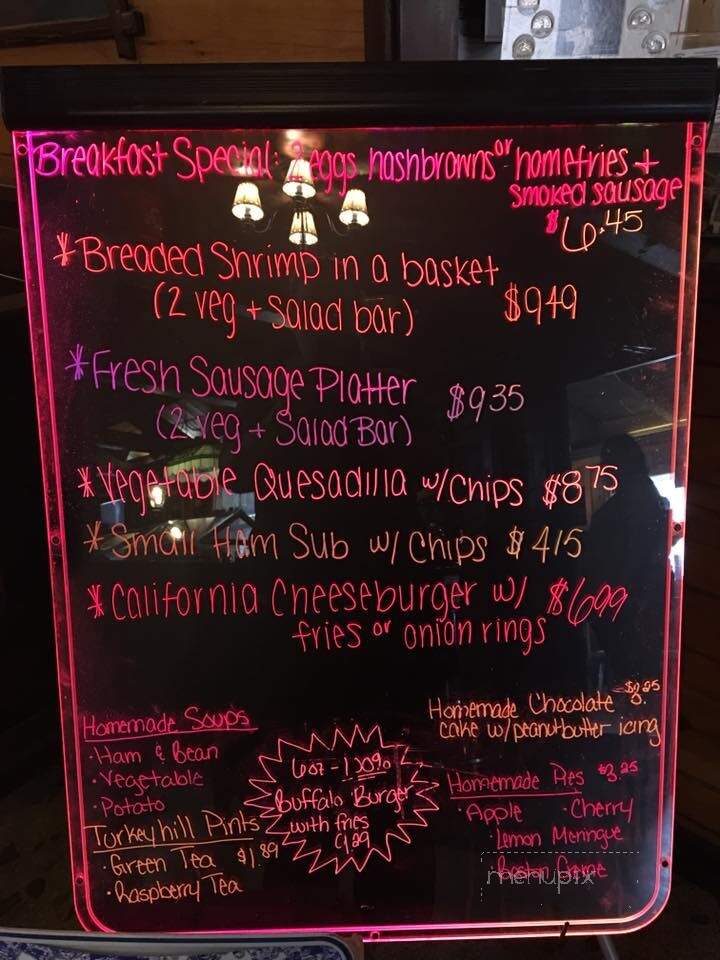 Breakfast Special: 2 eggs hashbrowns or homefries +
smoked sausage
$6.45
*Breaded Shrimp in a basket
(2 veg + Salad bar) $949
*Fresh Sausage Platter $935
(2 veg + Salad Bar)
*Vegetable Quesadilla w/Chips $875
*Small Ham Sub w/ Chips $415
*California Cheeseburger w/ $699
fries or onion rings
Homemade Soups
·Ham & Bean
·Vegetable
·Potato
Turkeyhill Pints
·Green Tea $1.89
·Raspberry Tea
6oz - 100%
Buffalo Burger
with fries
Homemade Chocolate
cake w/peanutbutter icing
Homemade Pies $3.25
·Apple ·Cherry
·Lemon Meringue
·Boston Creme
menupix